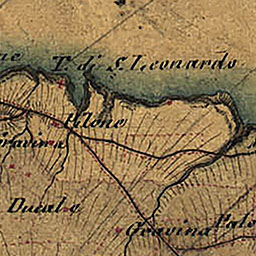 T. di S. Leonardo
Pilone
Gravina
Ducale
Gravina